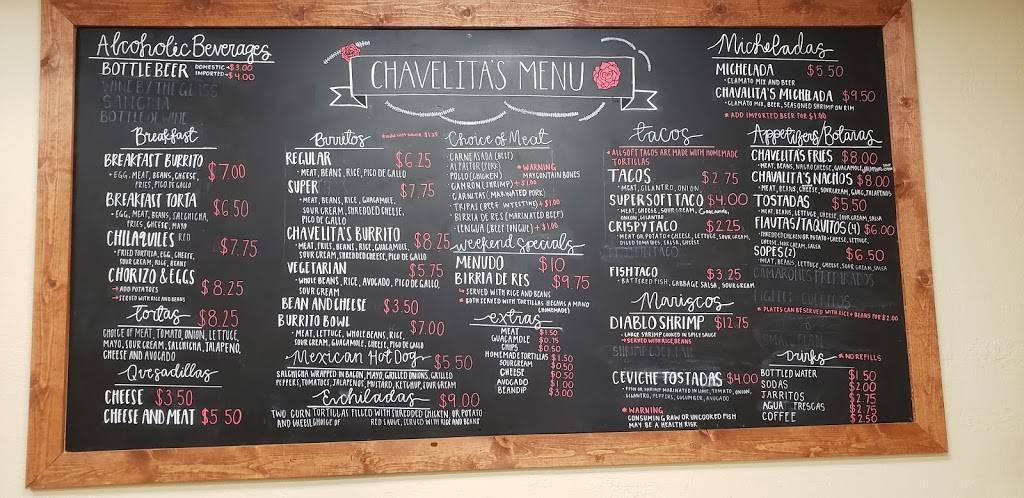 CHAVELITA'S MENU
Alcoholic Beverages
BOTTLE BEER DOMESTIC → $3.00
IMPORTED → $4.00
WINE BY THE GLASS
SANGRIA
BOTTLE OF WINE
Breakfast
BREAKFAST BURRITO $7.00
• EGG, MEAT, BEANS, CHEESE,
FRIES, PICO DE GALLO
BREAKFAST TORTA $6.50
• EGG, MEAT, BEANS, SALCHICHA,
FRIES, CHEESE, MAYO
CHILAQUILES RED $7.75
• FRIED TORTILLA, EGG, CHEESE,
SOUR CREAM, RICE, BEANS
CHORIZO & EGGS $8.25
→ ADD POTATOES
→ SERVED WITH RICE AND BEANS
tortas $8.25
CHOICE OF MEAT, TOMATO, ONION, LETTUCE,
MAYO, SOUR CREAM, SALCHICHA, JALAPENO,
CHEESE AND AVOCADO
Quesadillas
CHEESE $3.50
CHEESE AND MEAT $5 50
Burritos
REGULAR $6.25
• MEAT, BEANS, RICE, PICO DE GALLO
SUPER $7.75
• MEAT, BEANS, RICE, GUACAMOLE,
SOUR CREAM, SHREDDED CHEESE,
PICO DE GALLO
CHAVELITA'S BURRITO $8.25
• MEAT, FRIES, BEANS, RICE, GUACAMOLE,
SOUR CREAM, SHREDDED CHEESE, PICO DE GALLO
VEGETARIAN $5.75
• WHOLE BEANS, RICE, AVOCADO, PICO DE GALLO,
SOUR CREAM
BEAN AND CHEESE $3.50
BURRITO BOWL $7.00
• MEAT, LETTUCE, WHOLE BEANS, RICE,
SOUR CREAM, GUACAMOLE, CHEESE, PICO DE GALLO
Mexican Hot Dog $5.50
SALCHICHA WRAPPED IN BACON, MAYO, GRILLED ONIONS, GRILLED
PEPPERS, TOMATOES, JALAPENOS, MUSTARD, KETCHUP, SOUR CREAM
Enchiladas $9.00
TWO CORN TORTILLAS FILLED WITH SHREDDED CHICKEN OR POTATO
AND CHEESE, CHOICE OF RED SAUCE, SERVED WITH RICE AND BEANS
Choice of Meat
• CARNE ASADA (BEEF)
• AL PASTOR (PORK)
• POLLO (CHICKEN)
• CAMRON (SHRIMP) + $1.00
• CARNITAS (MARINATED PORK)
• TRIPAS (BEEF INTESTINE) + $1.00
• BIRRIA DE RES (MARINATED BEEF)
• LENGUA (BEEF TONGUE) + $1.00
* WARNING
MAY CONTAIN BONES
weekend specials
MENUDO $10
BIRRIA DE RES $9.75
↳ SERVED WITH RICE AND BEANS
* BOTH SERVED WITH TORTILLAS HECHAS A MANO
(HOMEMADE)
extras
MEAT $1.50
GUACAMOLE $0.75
CHIPS $0.50
HOMEMADE TORTILLAS $1.50
SOUR CREAM $0.50
CHEESE $0.50
AVOCADO $1.00
BEAN DIP $3.00
Micheladas
MICHELADA $5 50
• CLAMATO MIX AND BEER
CHAVALITA'S MICHELADA $9.50
• CLAMATO MIX, BEER, SEASONED SHRIMP ON RIM
* ADD IMPORTED BEER FOR $1.00
tacos
* ALL SOFT TACOS ARE MADE WITH HOMEMADE
TORTILLAS
TACOS $2 75
• MEAT, CILANTRO, ONION
SUPER SOFT TACO $4.00
• MEAT, CHEESE, SOUR CREAM, GUACAMOLE,
ONION, CILANTRO
CRISPY TACO $2.25
• MEAT OR POTATO + CHEESE, LETTUCE, SOUR CREAM,
DICED TOMATOES, SALSA, CHEESE
FISH TACO $3.25
• BATTERED FISH, CABBAGE SALSA, SOUR CREAM
Mariscos
DIABLO SHRIMP $12.75
• LARGE SHRIMP COOKED IN SPICY SAUCE
→ SERVED WITH RICE, BEANS
SHRIMP COCKTAIL
CEVICHE TOSTADAS $4.00
• FISH OR SHRIMP MARINATED IN LIME, TOMATO, ONION,
CILANTRO, PEPPERS, CUCUMBER, AVOCADO
* WARNING
CONSUMING RAW OR UNCOOKED FISH
MAY BE A HEALTH RISK
Appetizers/Botanas
CHAVELITAS FRIES $8.00
• MEAT, BEANS, NACHO CHEESE, GUACAMOLE,
CHAVALITA'S NACHOS $8.00
• MEAT, BEANS, CHEESE, SOUR CREAM, GUAC, JALAPENOS
TOSTADAS $5.50
• MEAT, BEANS, LETTUCE, CHEESE, SOUR CREAM, SALSA
FLAUTAS/TAQUITOS (4) $6.00
• SHREDDED CHICKEN OR POTATO + CHEESE, LETTUCE,
CHEESE, SOUR CREAM, SALSA
SOPES (2) $6.50
• MEAT, BEANS, LETTUCE, CHEESE, SOUR CREAM, SALSA
CAMARONES PREPARADOS
* PLATES CAN BE SERVED WITH RICE + BEANS FOR $2.00
Drinks * NO REFILLS
BOTTLED WATER $1.50
SODAS $2.00
JARRITOS $2.75
AGUA FRESCAS $2.75
COFFEE $2.50